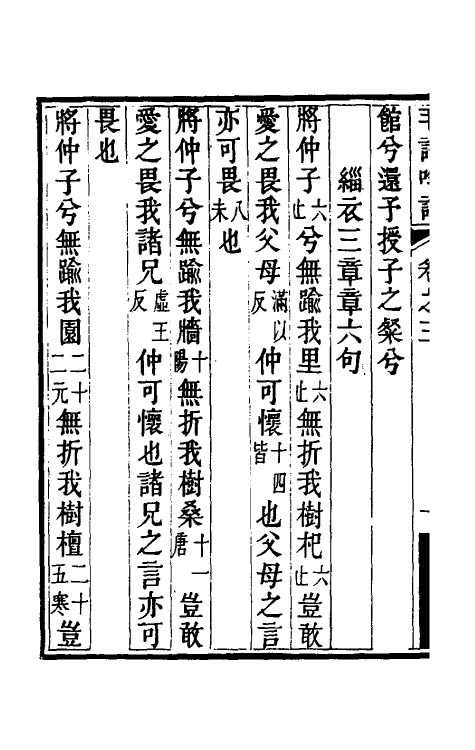 毛詩 卷之三
館兮還予授子之粲兮
緇衣三章章六句
將仲子六止兮無踰我里六止無折我樹杞六止豈敢
愛之畏我父母滿以反仲可懷十四皆也父母之言
亦可畏八未也
將仲子兮無踰我牆十陽無折我樹桑十一唐豈敢
愛之畏我諸兄虛王反仲可懷也諸兄之言亦可
畏也
將仲子兮無踰我園二十二元無折我樹檀二十五寒豈